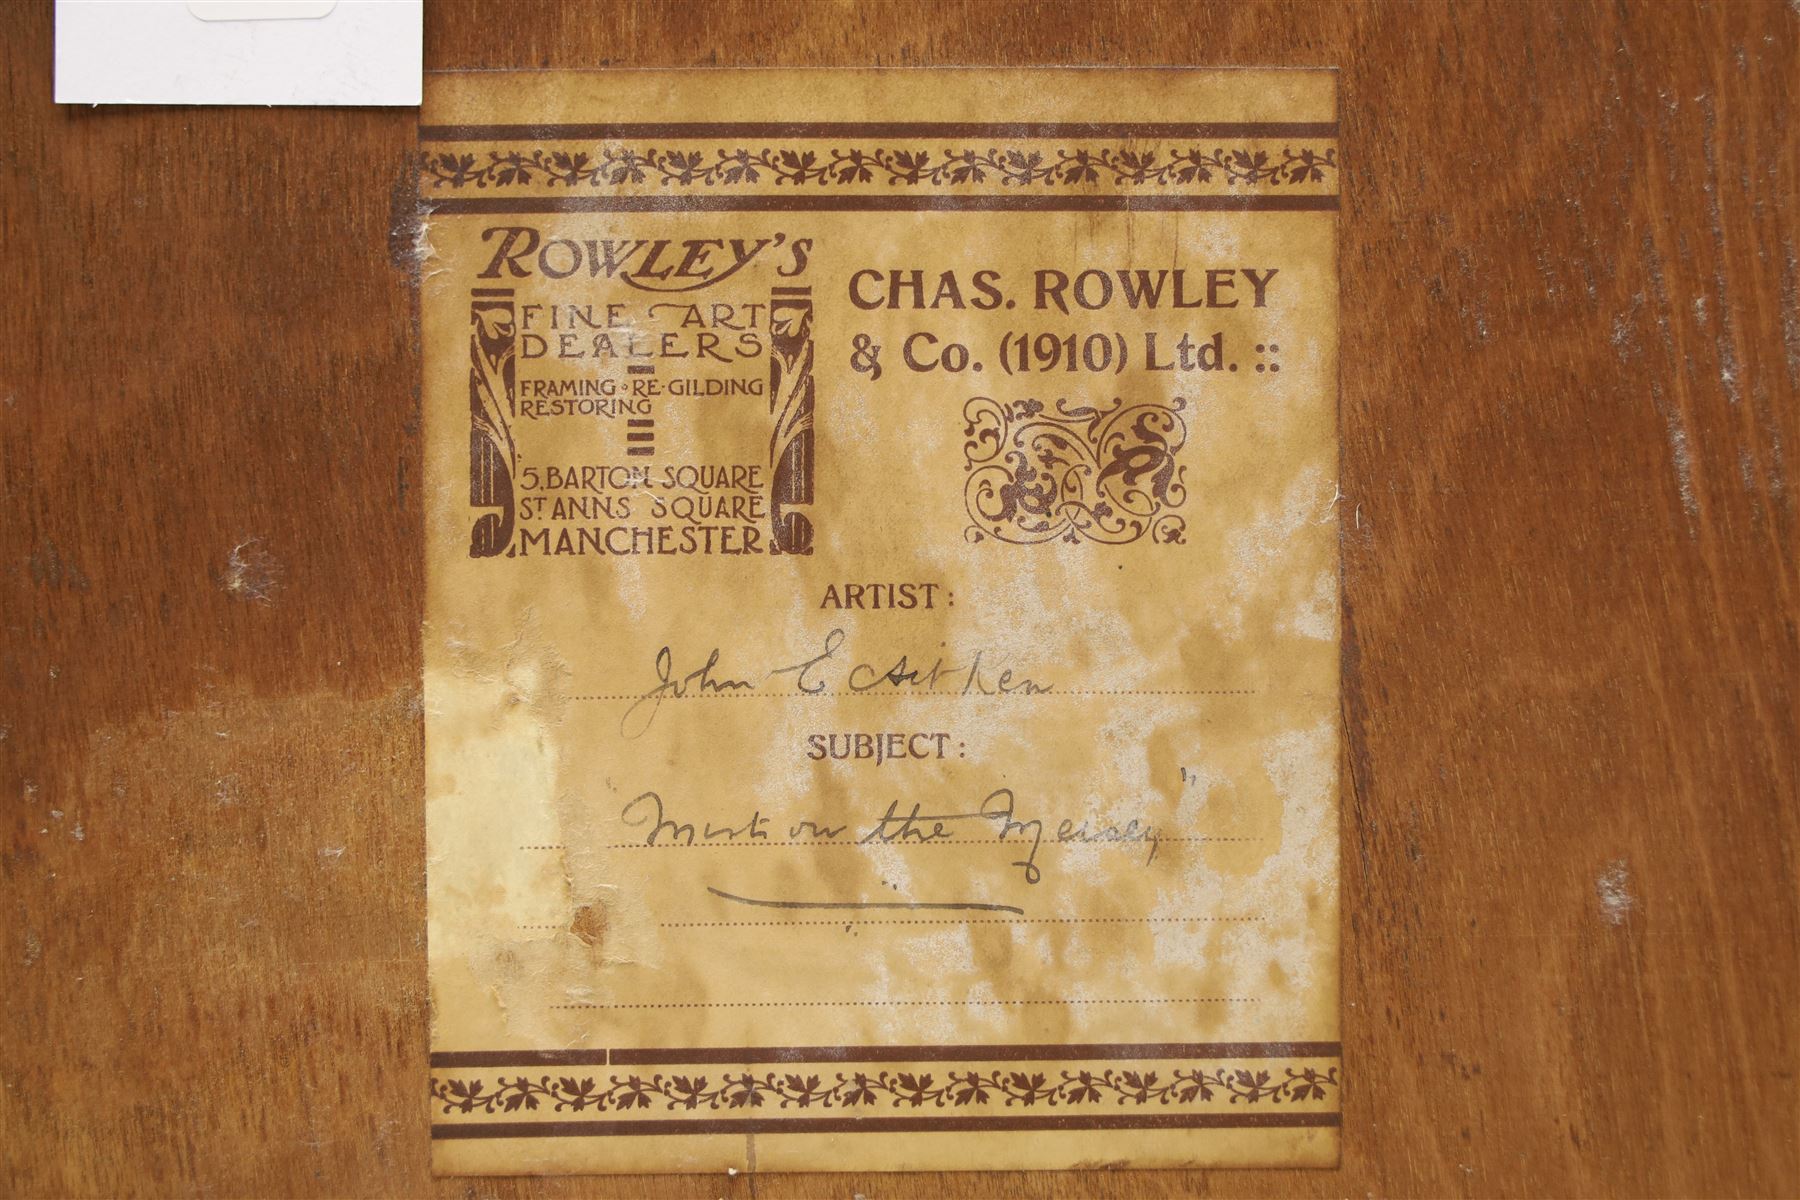 ROWLEY'S
FINE ART
DEALERS
FRAMING · RE-GILDING
RESTORING
5, BARTON SQUARE
ST ANNS SQUARE
MANCHESTER
CHAS. ROWLEY
& Co. (1910) Ltd. ::
ARTIST:
John E Aitken
SUBJECT:
"Mist on the Mersey"